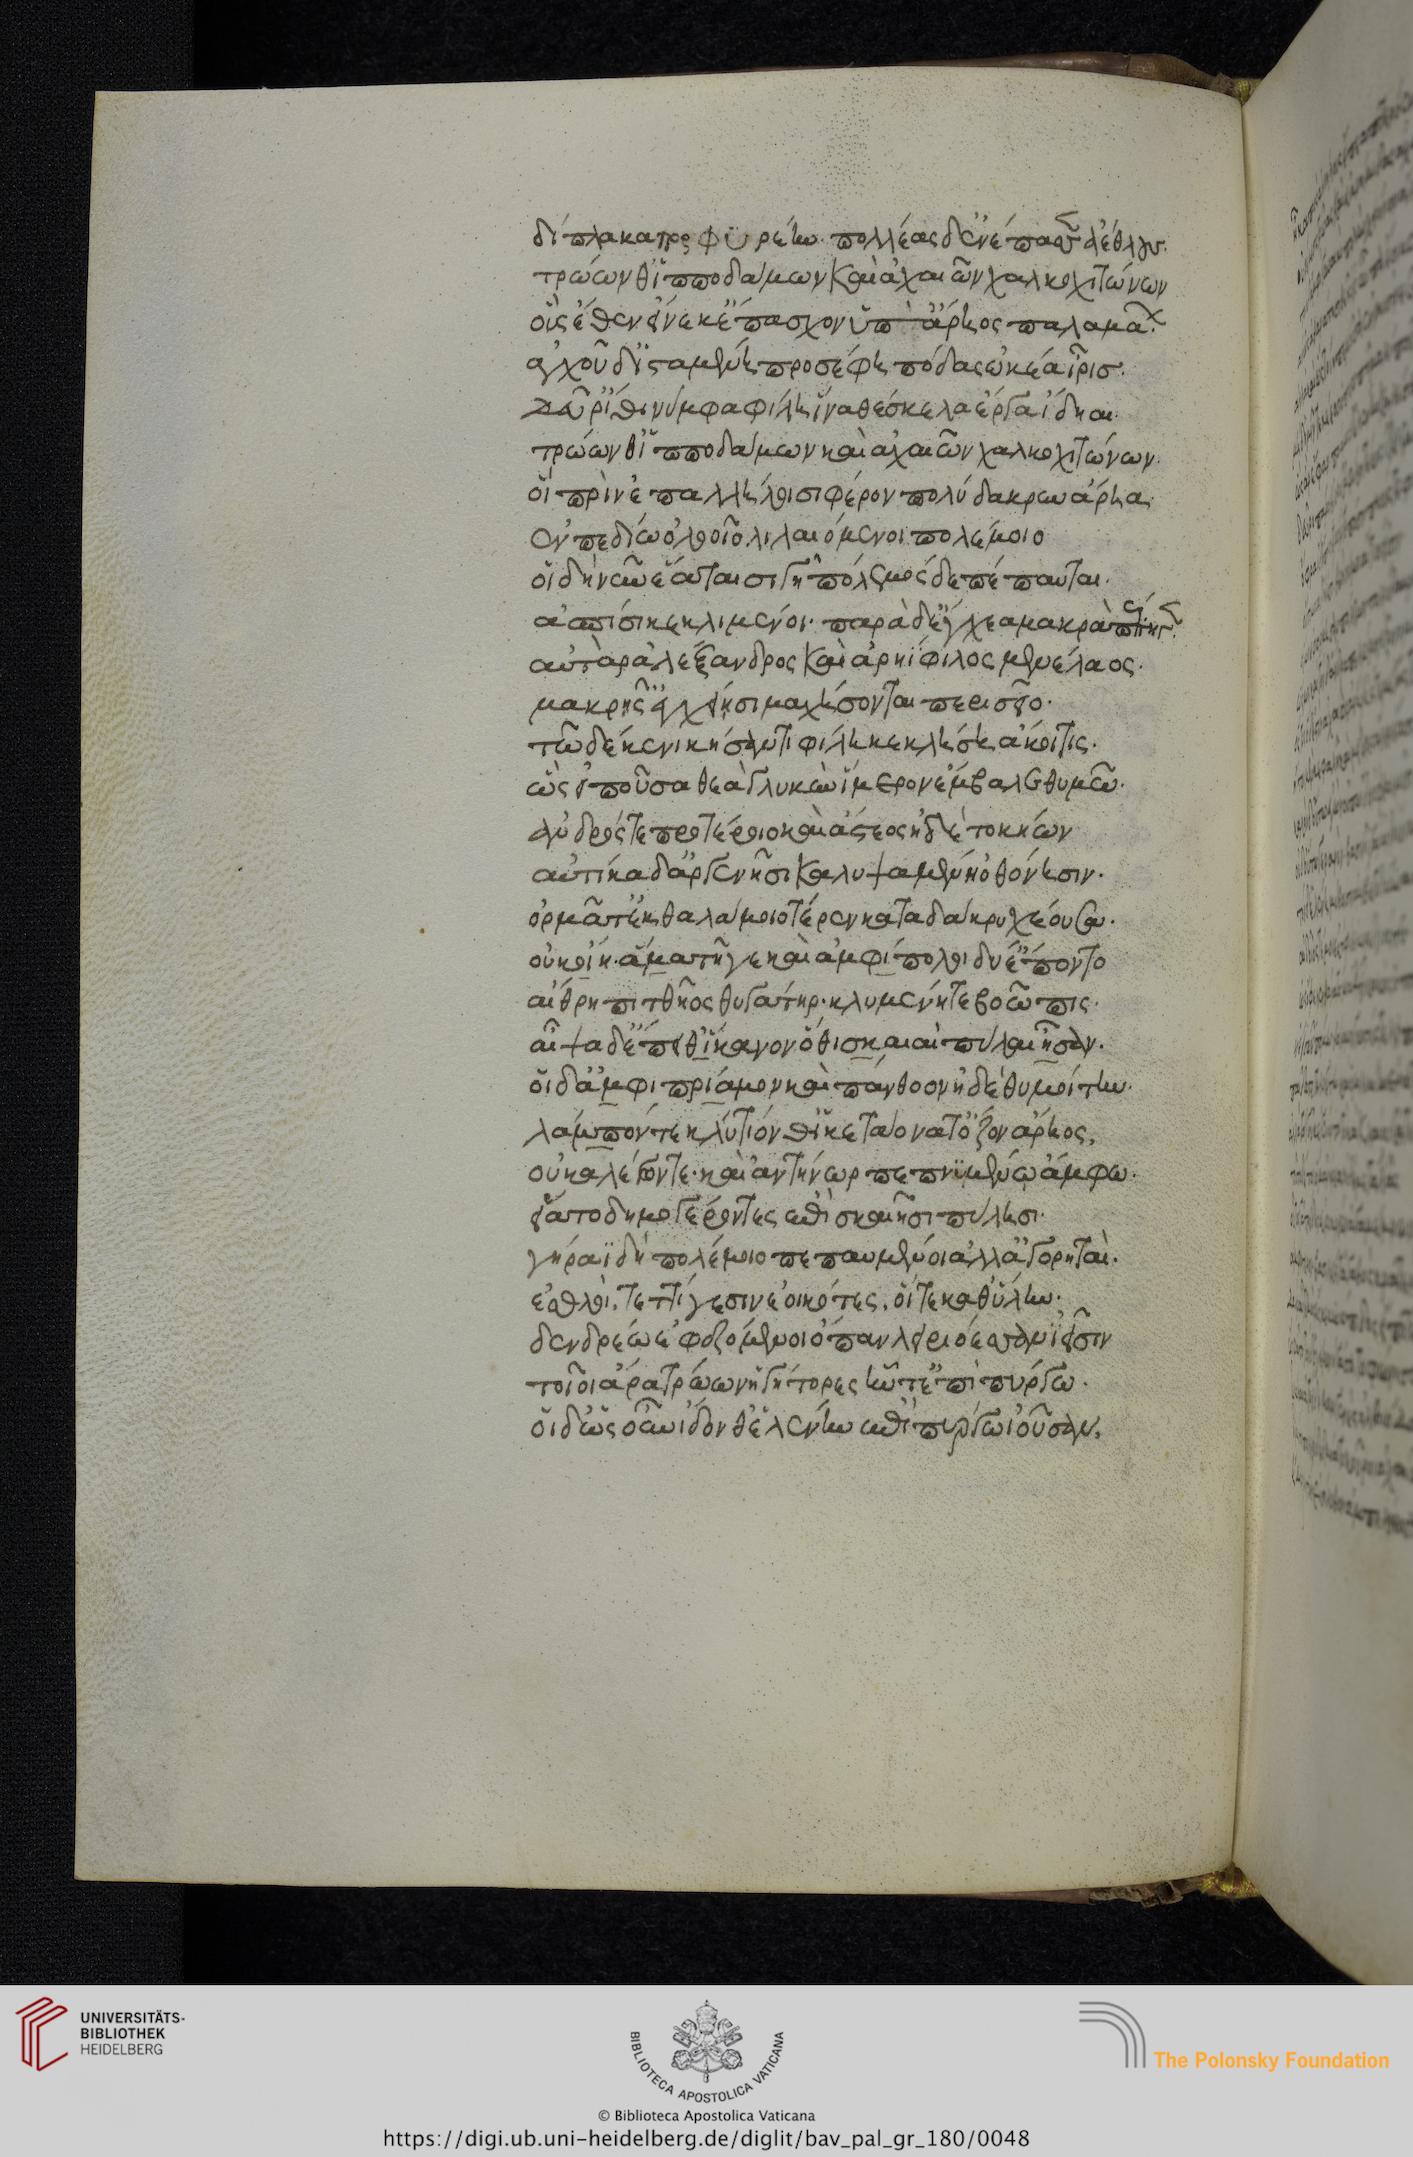 δίπλακα πορφυρέην· πολλέας δ' ἐνέπασσεν ἀέθλους·
τρώων θ' ἱπποδάμων καὶ ἀχαιῶν χαλκοχιτώνων
οὓς ἕθεν εἵνεκ' ἔπασχον ὑπ' ἄρηος παλαμάων·
ἀγχοῦ δ' ἱσταμένη προσέφη πόδας ὠκέα ἶρις·
δεῦρ' ἴθι νύμφα φίλη ἵνα θέσκελα ἔργα ἴδηαι·
τρώων θ' ἱπποδάμων καὶ ἀχαιῶν χαλκοχιτώνων·
οἳ πρὶν ἐπ' ἀλλήλοισι φέρον πολύδακρυν ἄρηα·
ἐν πεδίω ὀλοοῖο λιλαιόμενοι πολέμοιο
οἳ δὴ νῦν ἕαται σιγῆ πόλεμος δὲ πέπαυται·
ἀσπίσι κεκλιμένοι· παρὰ δ' ἔγχεα μακρὰ πέπηγεν·
αὐτὰρ ἀλέξανδρος καὶ ἀρηΐφιλος μενέλαος·
μακρῆς ἐγχείησι μαχήσονται περὶ σεῖο·
τῶ δέ κε νικήσαντι φίλη κεκλήση ἄκοιτις·
ὣς εἰποῦσα θεὰ γλυκὺν ἵμερον ἔμβαλε θυμῶ·
ἀνδρός τε προτέροιο καὶ ἄστεος ἠδὲ τοκήων
αὐτίκα δ' ἀργεννῆσι καλυψαμένη ὀθόνησιν·
ὁρμᾶτ' ἐκ θαλάμοιο τέρεν κατὰ δάκρυ χέουσα·
οὐκ οἴη· ἅμα τῆ γε καὶ ἀμφίπολοι δύ' ἕποντο
αἴθρη πιτθῆος θυγάτηρ· κλυμένη τε βοῶπις·
αἶψα δ' ἔπειθ' ἵκανον ὅθι σκαιαὶ πύλαι ἦσαν·
οἳ δ' ἀμφὶ πρίαμον καὶ πάνθοον ἠδὲ θυμοίτην·
λάμπόν τε κλύτιόν θ' ἱκετάονά τ' ὄζον ἄρηος,
οὐκαλέγων τε· καὶ ἀντήνωρ πεπνϋμένω ἄμφω·
εἵατο δημογέροντες ἐπὶ σκαιῆσι πύλησι·
γήραϊ δὴ πολέμοιο πεπαυμένοι ἀλλ' ἀγορηταὶ·
ἐσθλοὶ, τεττίγεσιν ἐοικότες, οἵ τε καθ' ὕλην·
δενδρέω ἐφεζόμενοι ὄπα λειριόεσσαν ἱεῖσιν
τοῖοι ἄρα τρώων ἡγήτορες ἧντ' ἐπὶ πύργω·
οἳ δ' ὡς οὖν ἴδον θ' ἑλένην ἐπὶ πύργω ἰοῦσαν,
UNIVERSITÄTS-
BIBLIOTHEK
HEIDELBERG
BIBLIOTECA APOSTOLICA VATICANA
The Polonsky Foundation
© Biblioteca Apostolica Vaticana
https://digi.ub.uni-heidelberg.de/diglit/bav_pal_gr_180/0048